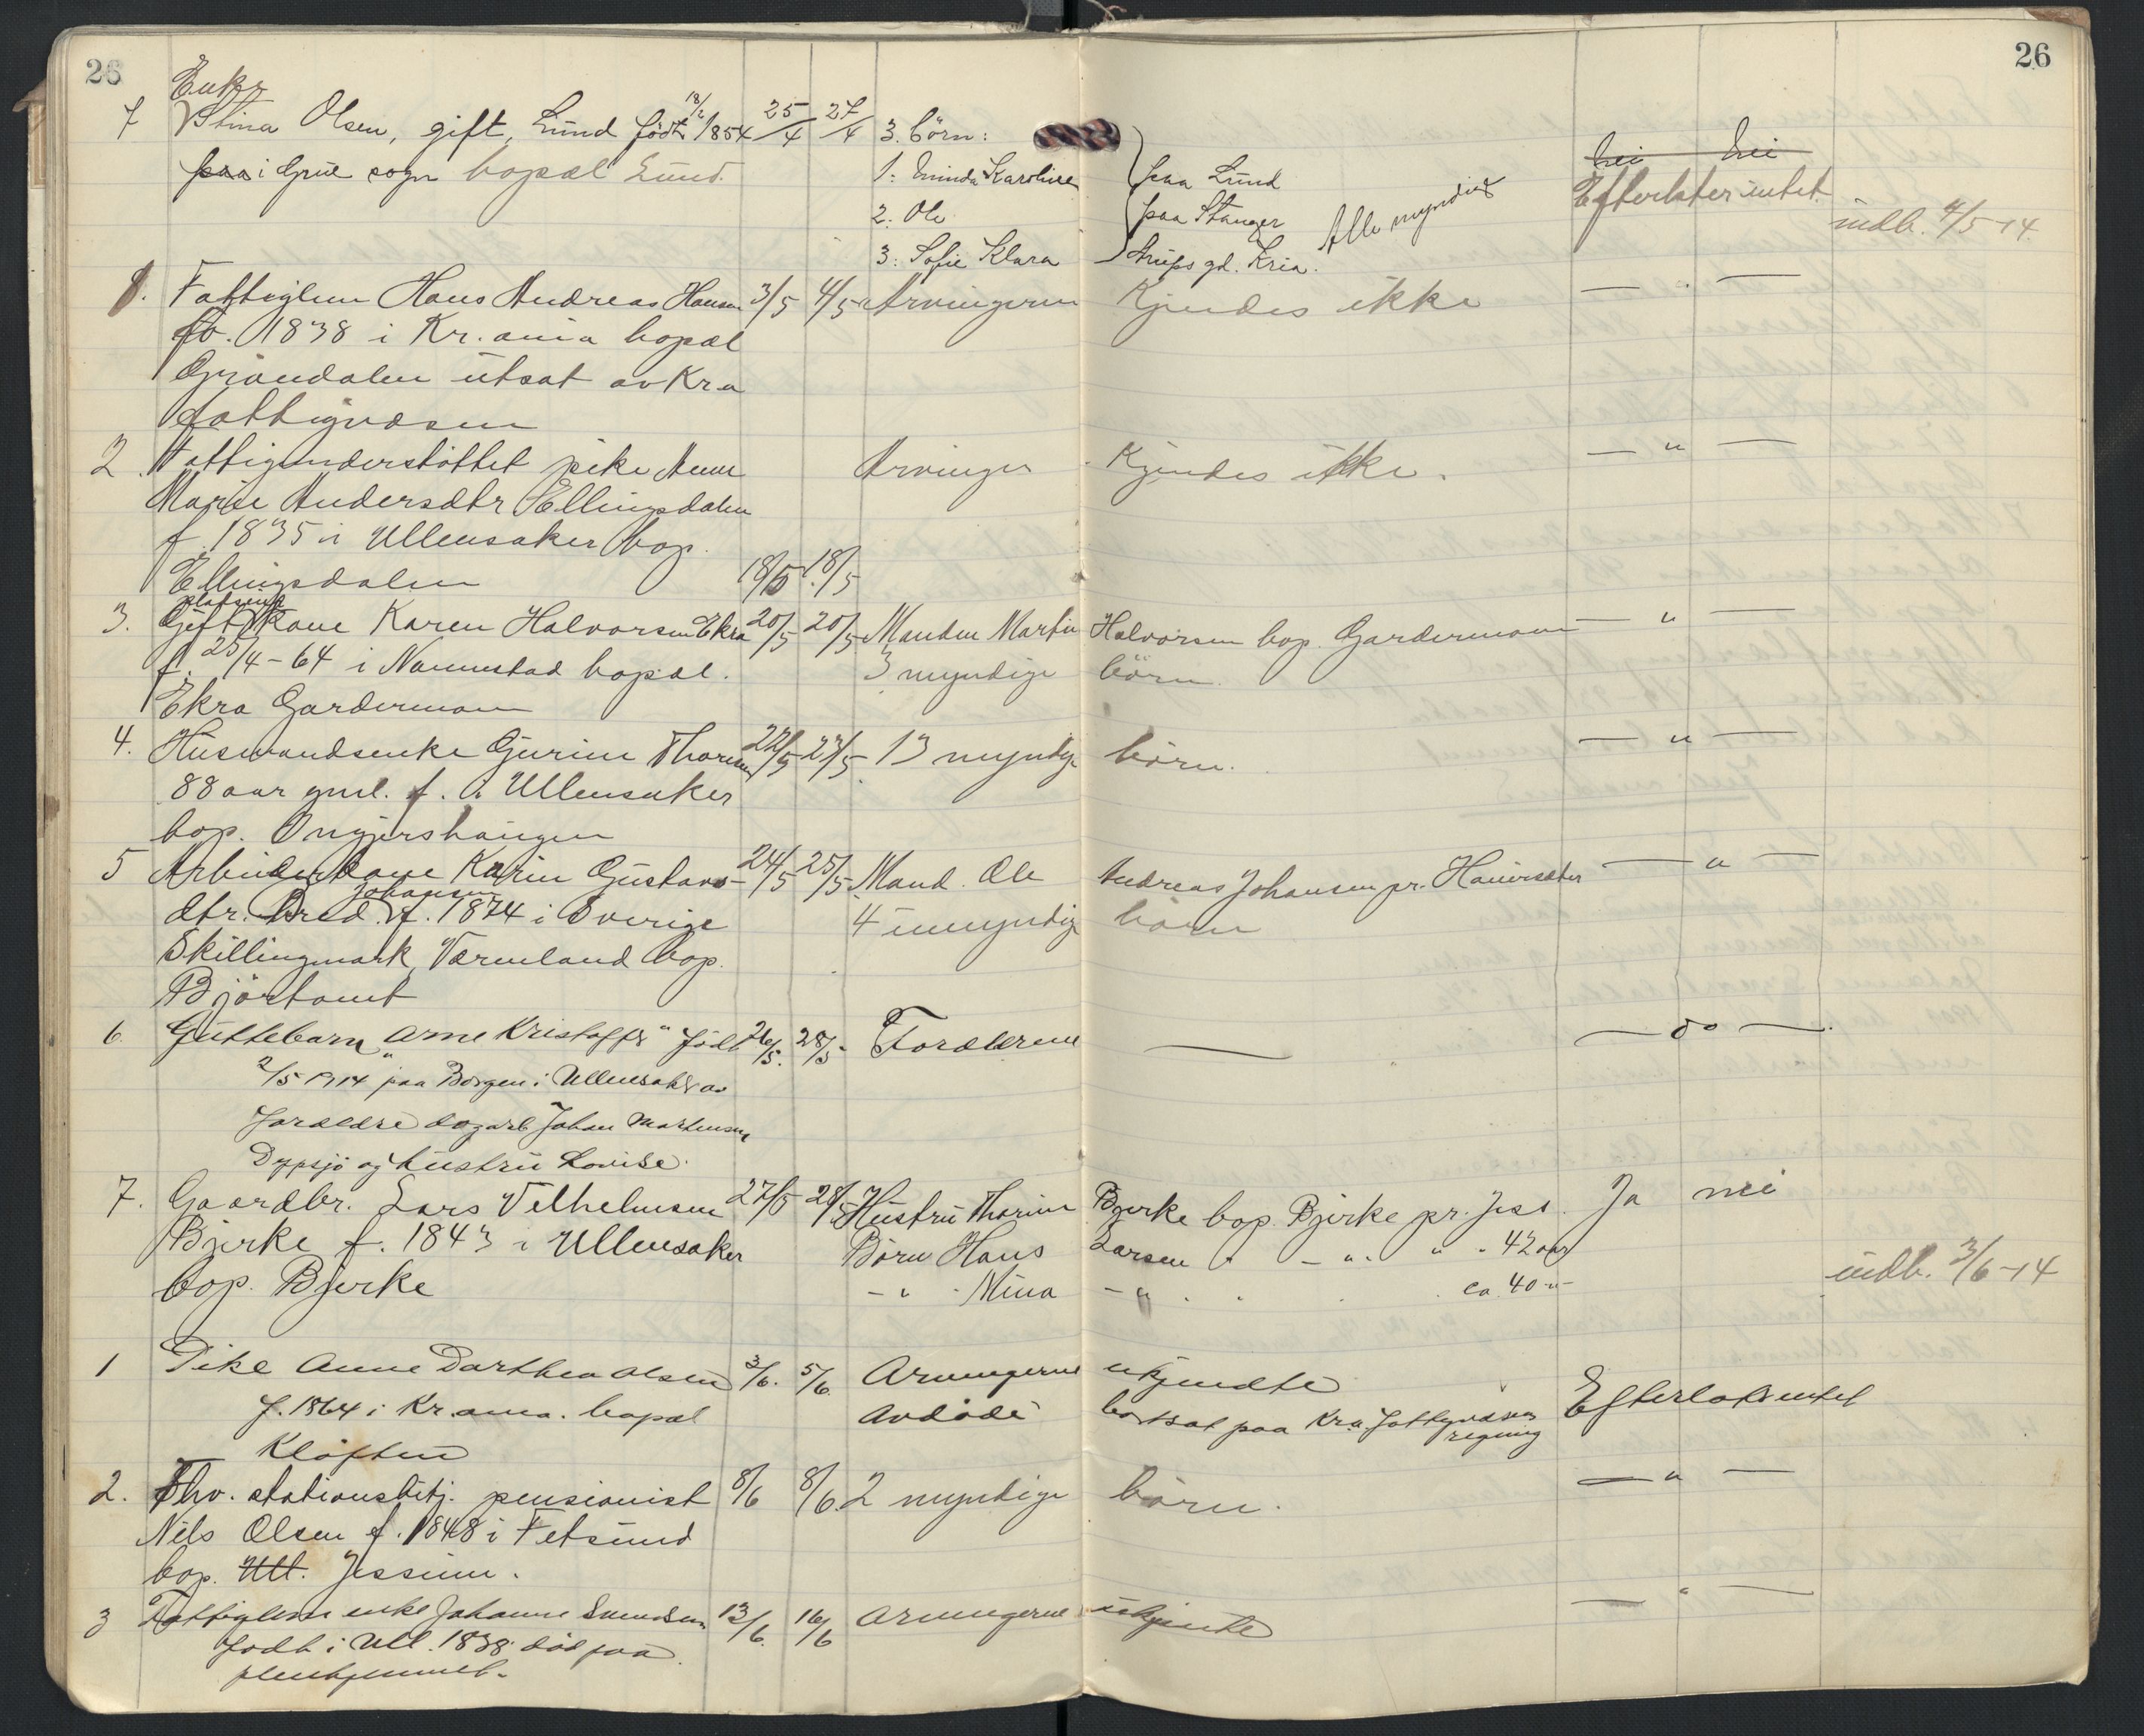 26 26
Enke
7 Stina Olsen, gift, Lund født 18/2 1854 25/4 27/4 3 börn: nei nei
paa i Grue sogn bopæl Lund. 1. Eminda Karoline paa Lund Efterlater intet
2. Ole paa Stanger Alle myndige indb. 4/5-14.
3. Sofie Klara gd. Kria.
1. Fattiglem Hans Andreas Hansen 3/5 4/5 Arvingerne Kjendes ikke — " —
fö. 1838 i Kr.ania bopæl
Gröndalen utsat av Kra
fattigvæsen
2 Fattigunderstöttet pike Anne Arvinger Kjendes ikke. — " —
Marie Andersdtr Ellingsdalen
f. 1835 i Ullensaker bop.
Ellingsdalen 18/5 18/5
3. Gift Kone Karen Halvorsen Ekra 20/5 20/5 Manden Martin Halvorsen bop. Gardermoen — " —
f. 25/4-64 i Nannestad bopæl. 3 myndige börn.
Ekra Gardermoen
4. Husmandsenke Gurine Thoresen 22/5 23/5 13 myndige börn. — " —
88 aar gml. f. i Ullensaker
bop.
5 Arbeiderkone Karin Gustavs- 24/5 25/5 Mand. Ole Andreas Johansen pr. Hauersæter — " —
Johansen
dtr. f. 1874 i Sverige 4 umyndig börn
Skillingmark, Værmland bop.
Björtomt
6. Guttebarn "Arne Kristoffer" född 26/5. 28/5. Forældrene — — do —
2/5 1914 paa Borgen i Ullensaker av
forældre dagarb Johan Martinsen
Dyppsjö og hustru Lovise.
7. Gaardbr. Lars Vilhelmsen 27/5 28/5 Hustru Thorine Bjerke bop. Bjerke pr. Jess. Ja nei
Bjerke f. 1843 i Ullensaker Börn Hans Larsen " — " " 42 aar
bop. Bjerke — " Mina — " ca. 40 — indb. 3/6-14
1 Pike Anne Darthea Olsen 3/6. 5/6 Arvingerne ukjendte
f. 1864 i Kr.ania. bopæl Avdöde bortsat paa Kra. Fattigvæsens regning Efterlot intet
Klöften
2. Fhv. stationsbetj. pensionist 8/6 8/6. 2 myndige börn. — " —
Nils Olsen f. 1848 i Fetsund
bop. Ull. Jessum.
3 Fattiglem enke Johanne Svendsen 13/6. 16/6 arvingerne ukjente — " —
Född i Ull. 1838. död paa
pleiehjemmet.